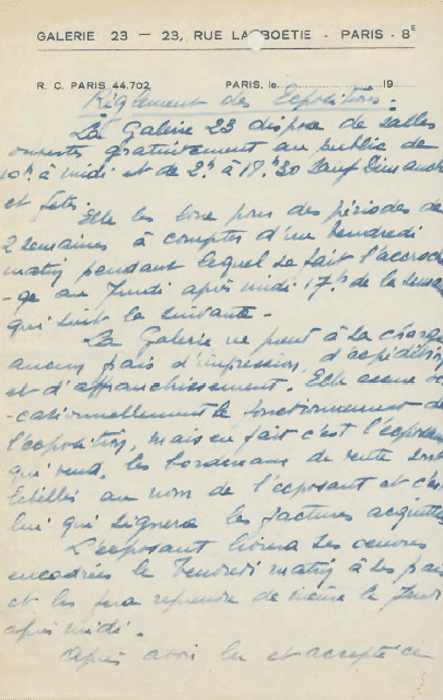 GALERIE 23 — 23, RUE LA BOËTIE - PARIS - 8E
R. C. PARIS 44.702 PARIS, le 19
Règlement des Expositions.
La Galerie 23 dispose de salles
ouvertes gratuitement au public de
10h à midi et de 2h à 18h30 sauf Dimanch
et fêtes.
Elle les loue pour des périodes de
2 semaines à compter d'un Vendredi
matin pendant lequel se fait l'accroch
-ge au Jeudi après midi 17h de la sema
qui suit la suivante -
La Galerie ne prend à sa charge
aucuns frais d'impression, d'expédition
et d'affranchissement. Elle assure
-cationnellement le fonctionnement de
l'exposition, mais en fait c'est l'exposan
qui vend. les bordereaux de vente sont
libellés au nom de l'exposant et c'es
lui qui signera les factures acquittée
L'exposant livrera ses oeuvres
encadrées le Vendredi matin à ses frais
et les fera reprendre de même le Jeudi
après midi.
Après avoir lu et accepté ce